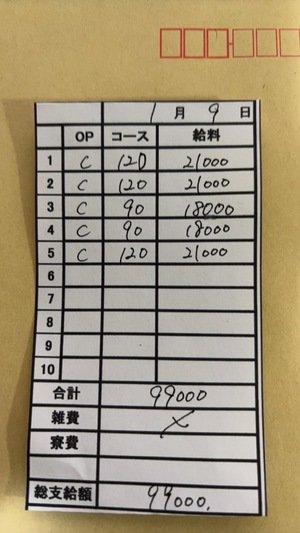 1月9日
OP コース 給料
1 C 120 21000
2 C 120 21000
3 C 90 18000
4 C 90 18000
5 C 120 21000
6
7
8
9
10
合計 99000
雑費 ×
寮費
総支給額 99000.